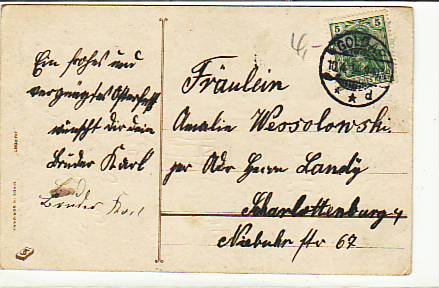 Ein frohes und
vergnügtes Osterfest
wünscht dir dein
Bruder Karl
Bruder Karl
5 5
GOLDAP
* * d
Fräulein
Amalie Wessolowski
per Adr Herrn Landy
Charlottenburg 4
Niebuhr str 67